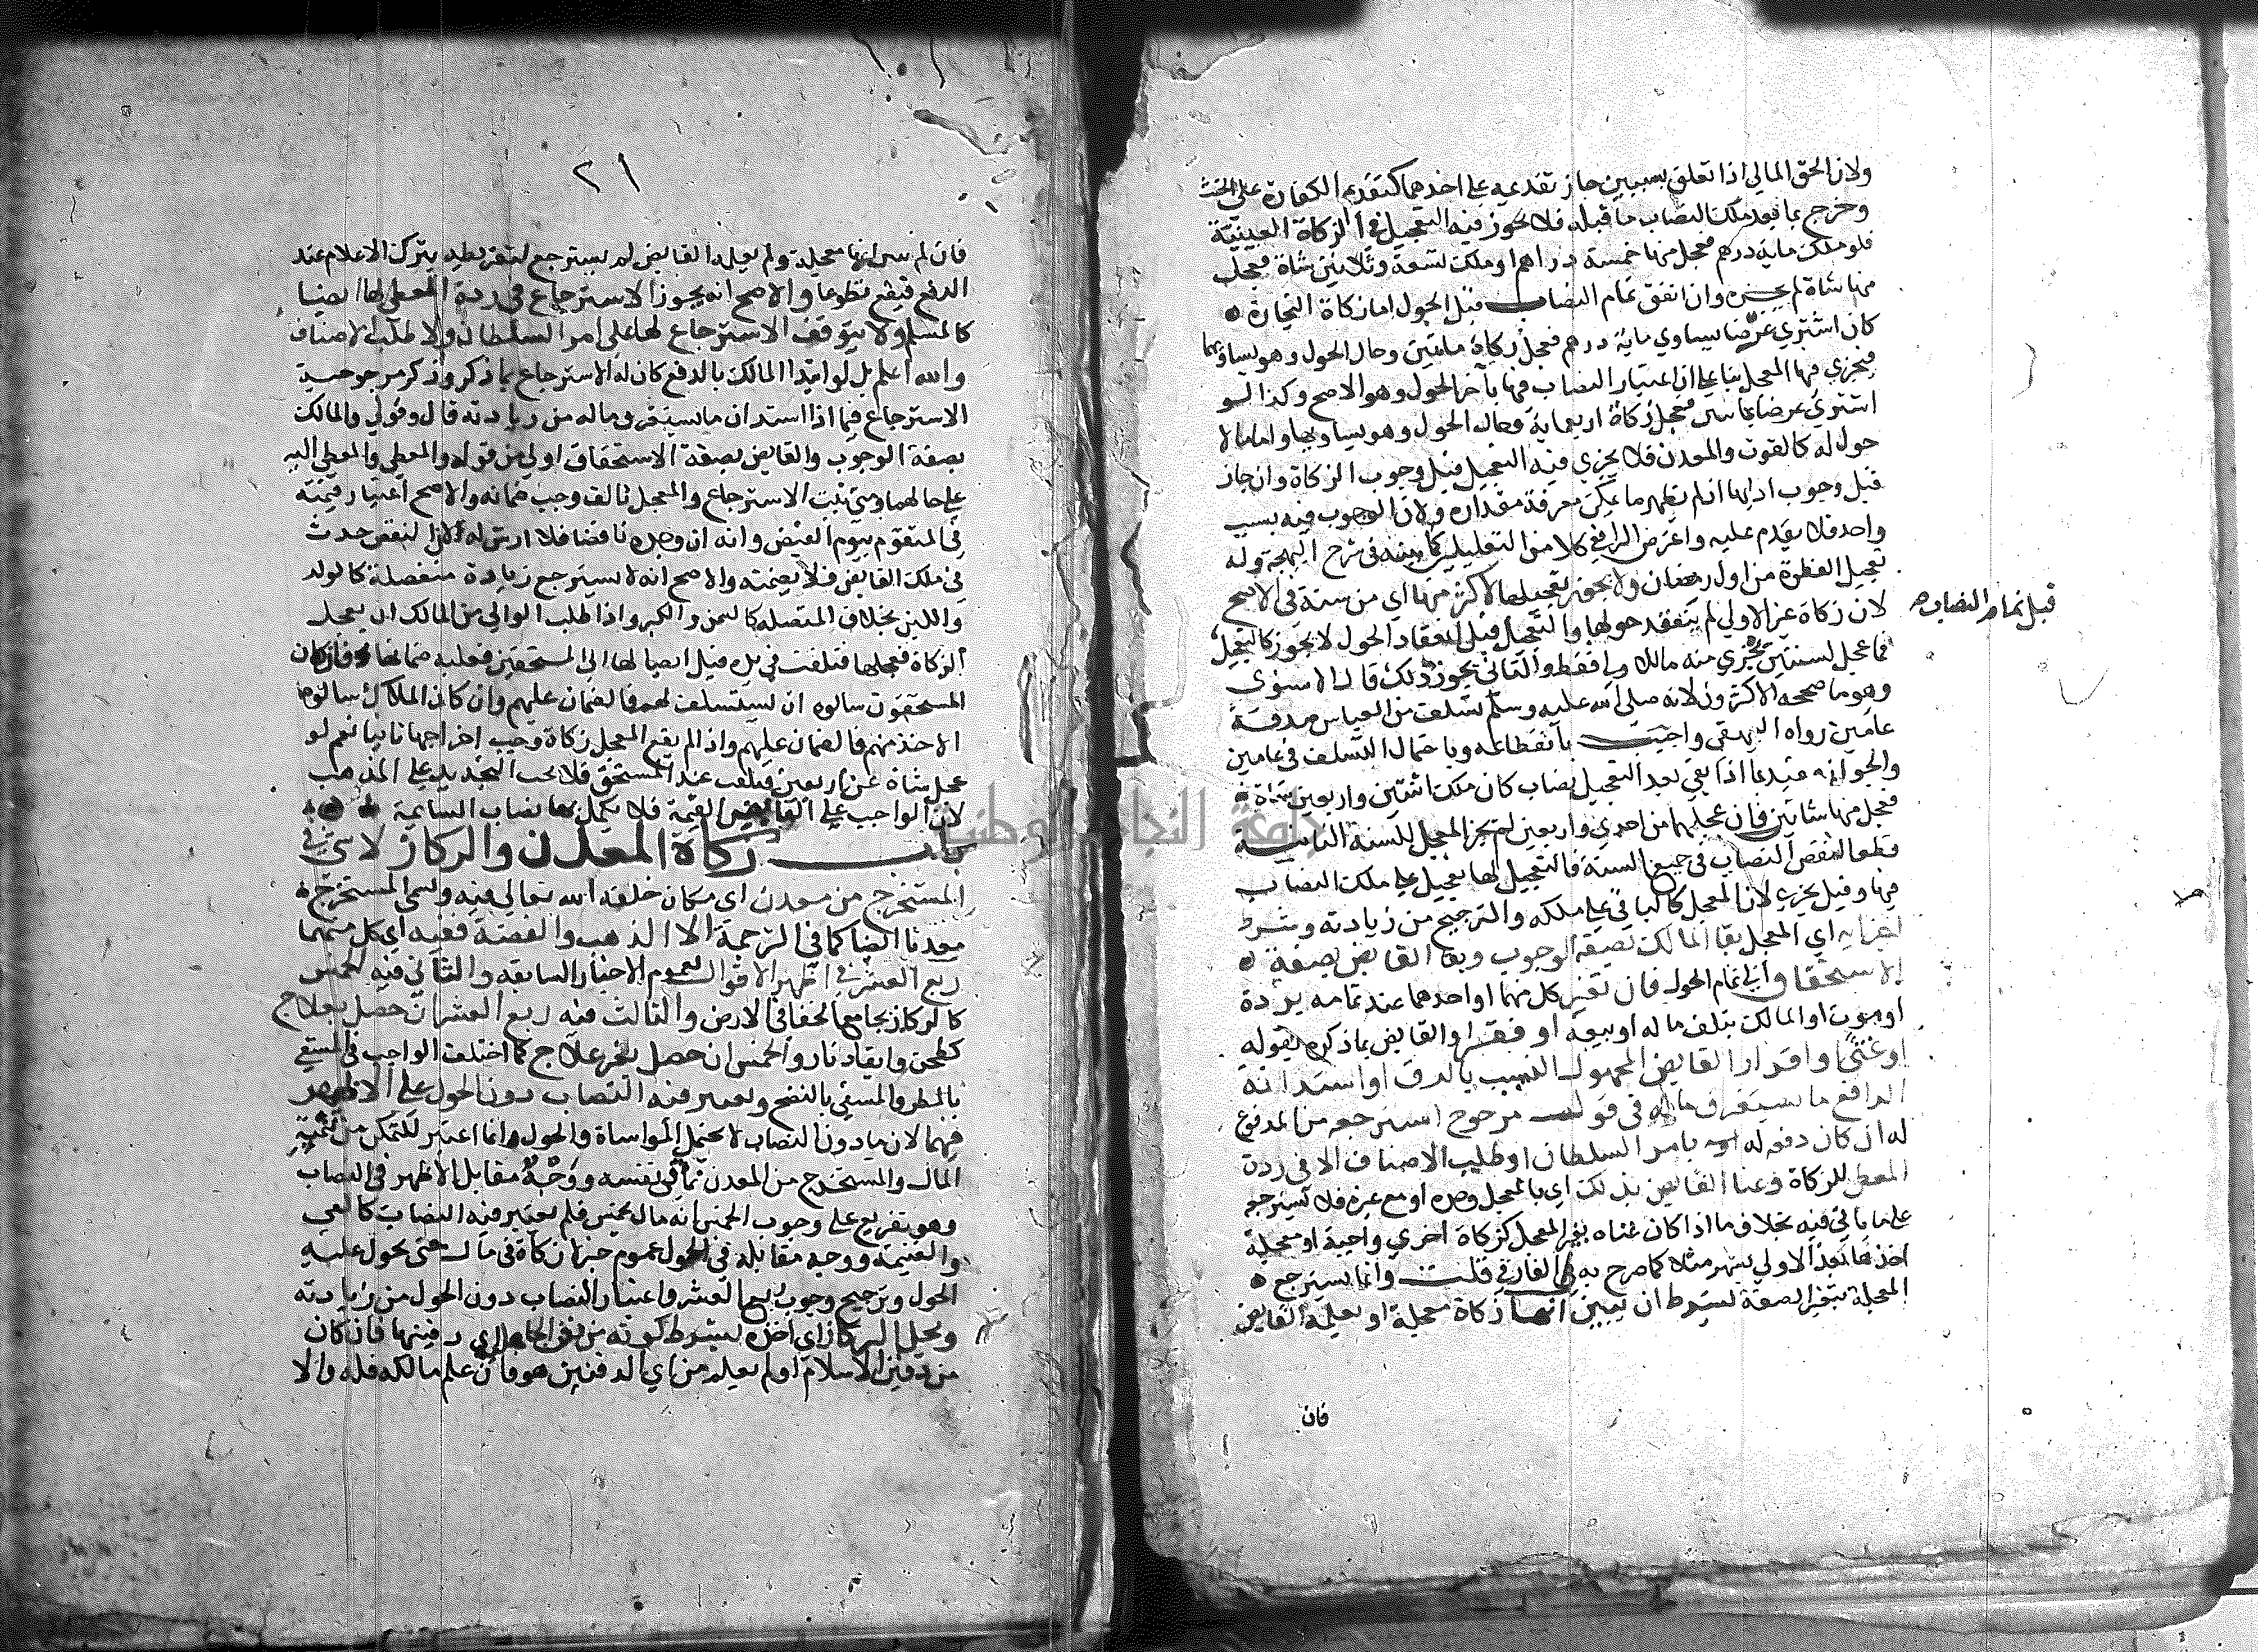 ولان الحق المالي اذا تعلق بسببين جاز تقديمه على احدهما كتقديم الكفارة على الحنث
وخرج بما بعد ملك النصاب ما قبله فلا يجوز فيه التعجيل في الزكاة العينية
فلو ملك ماية درهم فعجل منها خمسة دراهم او ملك تسعة وثلاثين شاة فعجل
منها شاة لم يجزه وان اتفق تمام النصاب قبل الحول اما زكاة التجارة
كان اشتري عرضا يساوي ماية درهم فعجل زكاة مايتين وحال الحول وهو يساويهما
فيجزي فيها المعجل بنا على ان اعتبار النصاب فيها بآخر الحول وهو الاصح وكذا لو
اشتري عرضا بمايتين فعجل زكاة اربعماية وحال الحول وهو يساويها واما ما لا
حول له كالقوت والمعدن فلا يجزي فيه التعجيل قبل وجوب الزكاة وان جاز
قبل وجوب ادايها اذ لم يظهر ما يمكن معرفة مقداره ولان الوجوب فيه بسبب
واحد فلا يقدم عليه واعترض الرافعي كلا من التعليلين كما بينته في شرح البهجة وله
تعجيل الفطرة من اول رمضان ولا يجوز تعجيلها لاكثر منها اي من سنة في الاصح
لان زكاة غير الاولي لم ينعقد حولها والتعجيل قبل انعقاد الحول لا يجوز كالتعجيل
قبل تمام النصاب
فما عجل لسنتين يجزي منه مالا ولي فقط والثاني يجوز ذلك قال الاسنوي
وهو ما صححه الاكثرون لانه صلى الله عليه وسلم تسلف من العباس صدقة
عامين رواه البيهقي واجيب بانقطاعه وباحتمال التسلف في عامين
والجواز مقيد بما اذا بقي بعد التعجيل نصاب كان ملك اثنتين واربعين شاة
فعجل منها شاتين فان عجلهما من احدي واربعين لم يجز المعجل للسنة الثانية
قطعا لنقص النصاب في جميع السنة فالتعجيل لها تعجيل على ملك النصاب
فيها وقيل يجزي لان المعجل كالباقي على ملكه والترجيح من زيادته وشرط
اجزايه اي المعجل بقا المالك بصفة الوجوب وبقا القابض بصفة
الاستحقاق الي تمام الحول فان تغير كل منهما او احدهما عند تمامه بردة
او موت او المالك بتلف ماله او بيعه او فقر او القابض بما ذكره بقوله
او غني واقرار القابض المجهول النسب بالرق او استدانة
الدافع ما يستغرق ماله في قول مرجوح استرجعه من المدفوع
له ان كان دفعه له بامر السلطان او طلب الاصناف الا في ردة
المعطي للزكاة وغنا القابض بذلك اي بالمعجل وحده او مع غيره فلا يسترجعه
على ما ياتي فيه بخلاف ما اذا كان غناه بغير المعجل كزكاة اخري واجبة او معجلة
اخذها بعد الاولي بشهر مثلا كما صرح به الفارقي قلت وانما يسترجع
المعجلة بتغير الصفة بشرط ان يبين انها زكاة معجلة او يعلمه القابض
فان
٢١
فان لم يبين انها معجلة ولم يعلمه القابض لم يسترجع لتفريطه بترك الاعلام عند
الدفع فيقع تطوعا والاصح انه يجوز الاسترجاع في ردة المعطي لها ايضا
كالمسلم ولا يتوقف الاسترجاع لها على امر السلطان ولا طلب الاصناف
والله اعلم بل لو ابتدا المالك بالدفع كان له الاسترجاع بما ذكر وذكر مرجوحية
الاسترجاع فيما اذا استدان ما يستغرق ماله من زيادته قال وقولي والمالك
بصفة الوجوب والقابض بصفة الاستحقاق اولي من قوله والمعطي والمعطي اليه
على حالهما ومتي ثبت الاسترجاع والمعجل تالف وجب ضمانه والاصح اعتبار قيمته
في المتقوم بيوم القبض وانه ان وجده ناقصا فلا ارش له لان النقص حدث
في ملك القابض فلا يضمنه والاصح انه لا يسترجع زيادة منفصلة كالولد
واللبن بخلاف المتصلة كالسمن والكبر واذا طلب الوالي من المالك ان يعجل
الزكاة فعجلها فتلفت في يده قبل ايصالها الي المستحقين فعليه ضمانها وان كان
المستحقون سالوه ان يستسلف لهم فالضمان عليهم وان كان الملاك سالوه
الاخذ منهم فالضمان عليهم واذا لم يقع المعجل زكاة وجب اخراجها ثانيا نعم لو
عجل شاة عن اربعين فتلفت عند المستحق فلا يجب التجديد على المذهب
لان الواجب على القابض القيمة فلا يكمل بها نصاب السايمة
باب زكاة المعدن والركاز لا شي في
المستخرج من معدن اي مكان خلقه الله تعالي فيه ويسمي المستخرج
معدنا ايضا كما في الترجمة الا الذهب والفضة ففيه اي كل منهما
ربع العشر في اظهر الاقوال لعموم الاخبار السابقة والثاني فيه الخمس
كالركاز بجامع الخفا في الارض والثالث فيه ربع العشر ان حصل بعلاج
كطحن وايقاد نار والخمس ان حصل بغير علاج كما اختلف الواجب في المسقي
بالمطر والمسقي بالنضح ويعتبر فيه النصاب دون الحول على الاظهر
فيهما لان ما دون النصاب لا يحتمل المواساة والحول وانما اعتبر للتمكن من تنمية
المال والمستخرج من المعدن نما في نفسه ووجه مقابل الاظهر في النصاب
وهو تفريع على وجوب الخمس انه مال يخمس فلم يعتبر فيه النصاب كالفي
والغنيمة ووجه مقابله في الحول عموم خبر لا زكاة في مال حتى يحول عليه
الحول وترجيح وجوب ربع العشر واعتبار النصاب دون الحول من زيادته
ويحل الركاز اي اخذه بشرط كونه من دفين الجاهلية اي دفينها فان كان
من دفين الاسلام او لم يعلم من اي الدفنين هو فان علم مالكه فله والا